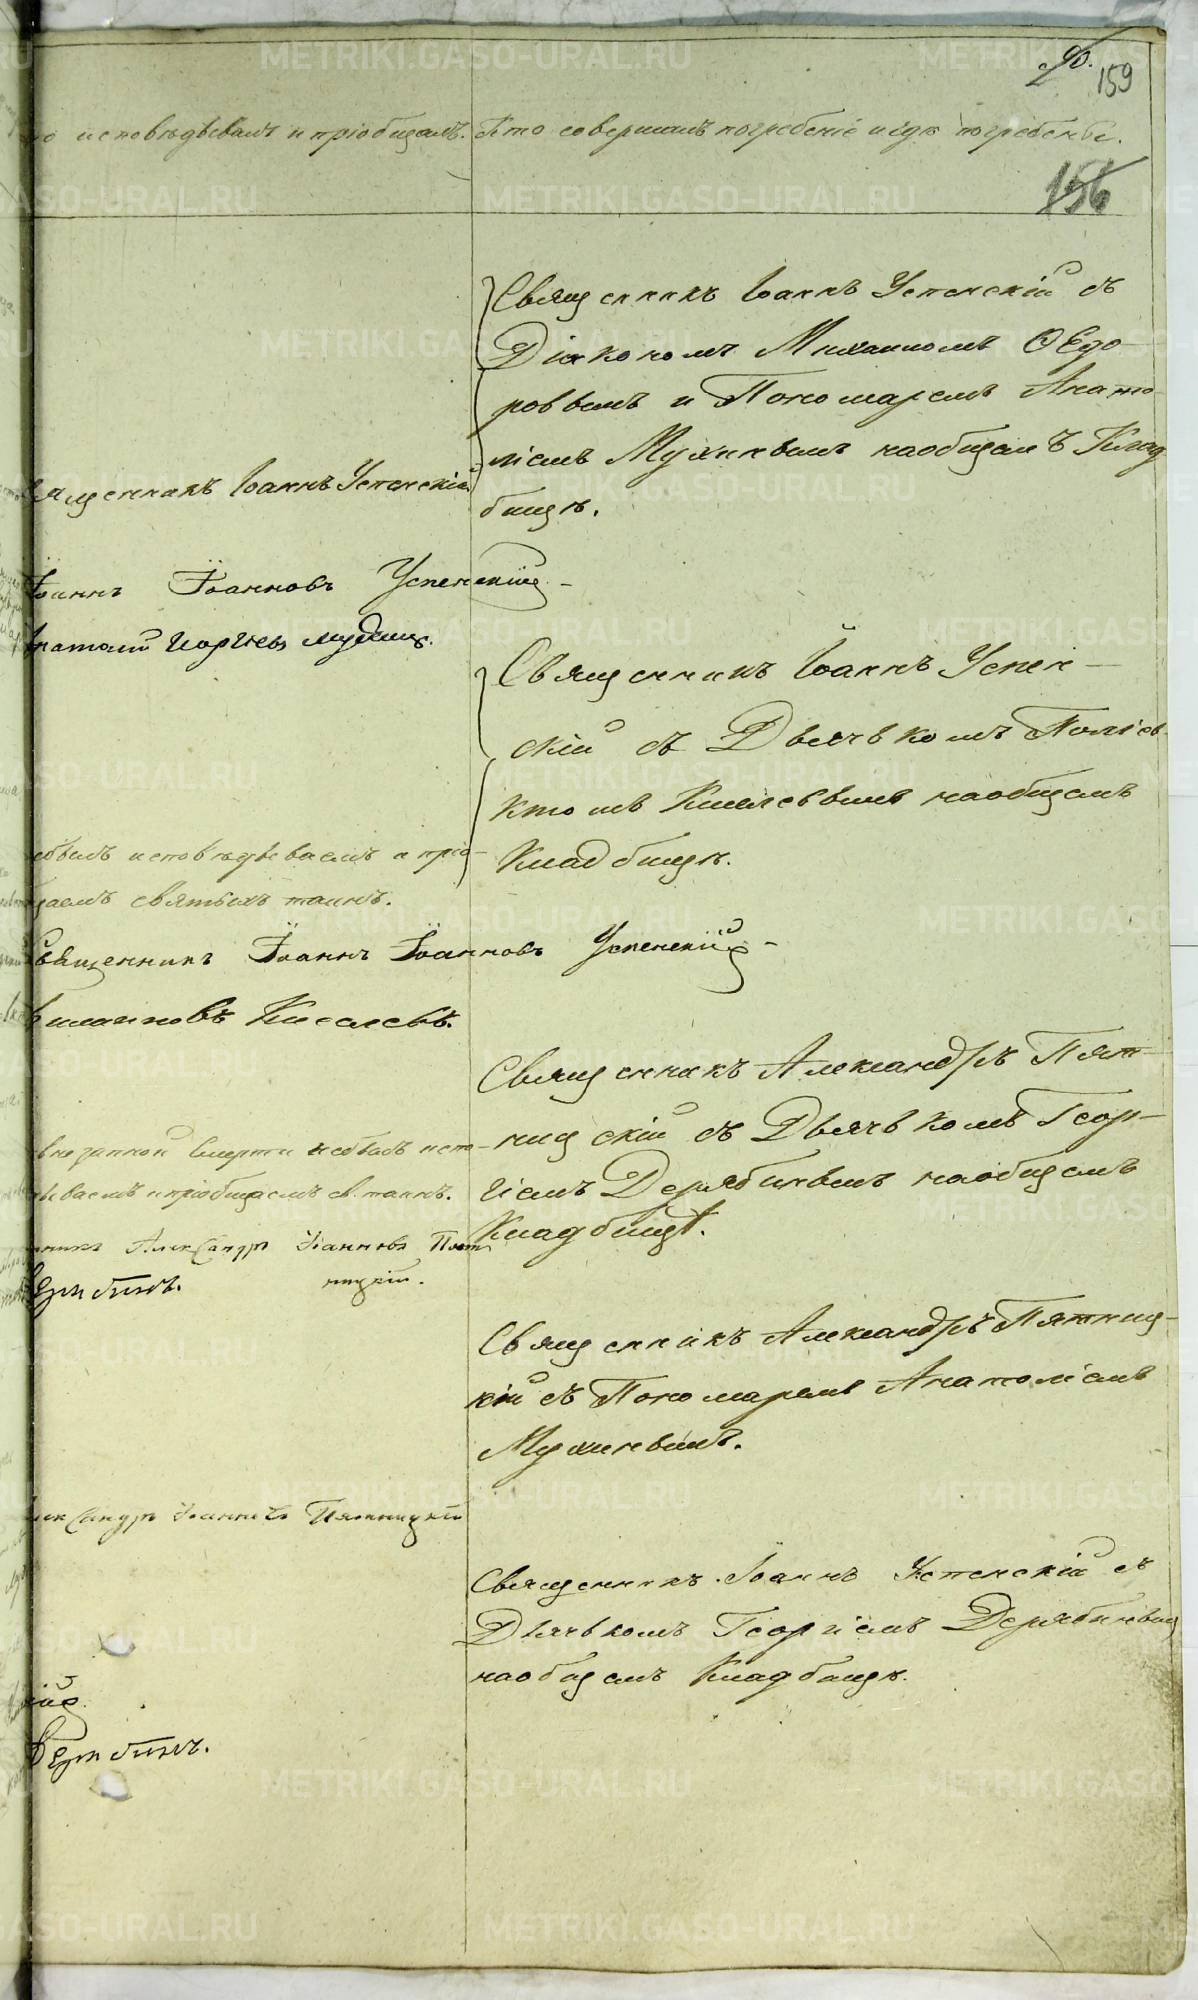 90.
159
исповѣдывалъ и пріобщалъ. Кто совершалъ погребеніе и гдѣ погребены.
156
Священникъ Іоаннъ Успенскій съ
Діякономъ Михаиломъ Ѳедо
ровымъ и Пономаремъ Анато
ліемъ Мухинымъ на общемъ Клад
бищѣ.
ященникъ Іоаннъ Успенскій
Іоаннъ Іоанновъ Успенскій
Анатолій Мухинъ.
Священникъ Іоаннъ Успен
скій съ Дьячькомъ
Киселевымъ на общемъ
Кладбищѣ.
небылъ исповѣдываемъ и прiо-
щаемъ святыхъ таинъ.
Священникъ Іоаннъ Іоанновъ Успенскій
Киселевъ.
Священникъ Александръ Пят-
ницскій съ Дьячькомъ Геор-
гіемъ Дерябинымъ на общемъ
Кладбищѣ.
внезапной смерти небылъ испо-
ываемъ и пріобщаемъ св. таинъ.
нникъ Александръ Іоанновъ Пят
ницкій.
Священникъ Александръ Пятниц-
кій съ Пономаремъ Анатоліемъ
Мухинымъ.
лександръ Іоанновъ Пятницкій
Священникъ Іоаннъ Успенскій съ
Дьячькомъ Георгіемъ Дерябинымъ
на общемъ Кладбищѣ.
METRIKI.GASO-URAL.RU